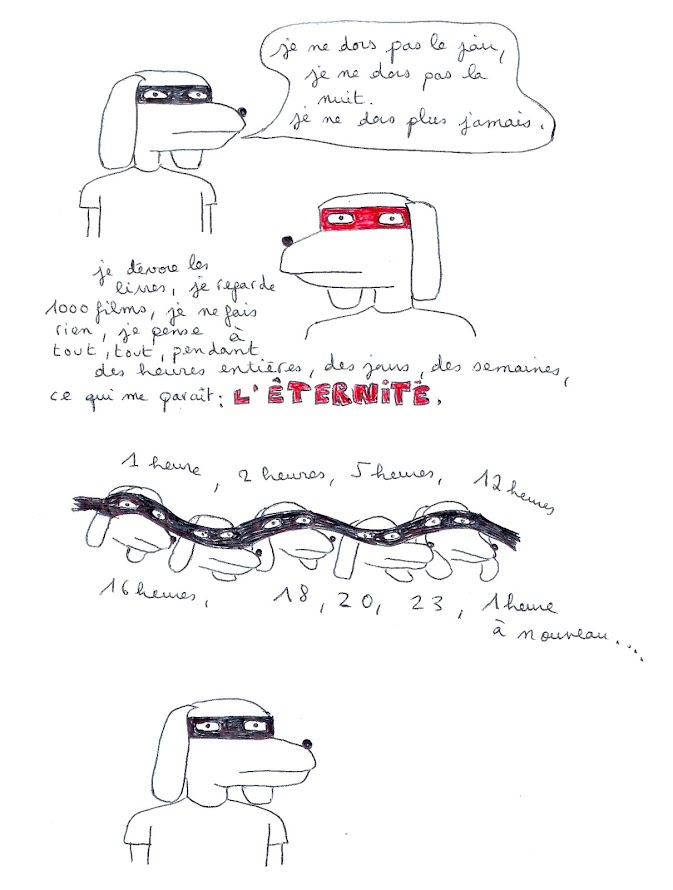 je ne dors pas le jour,
je ne dors pas la
nuit.
je ne dors plus jamais.
je dévore les
livres, je regarde
1000 films, je ne fais
rien, je pense à
tout, tout, pendant
des heures entières, des jours, des semaines,
ce qui me paraît: L'ÉTERNITÉ.
1 heure, 2 heures, 5 heures, 12 heures
16 heures, 18, 20, 23, 1 heure
à nouveau....